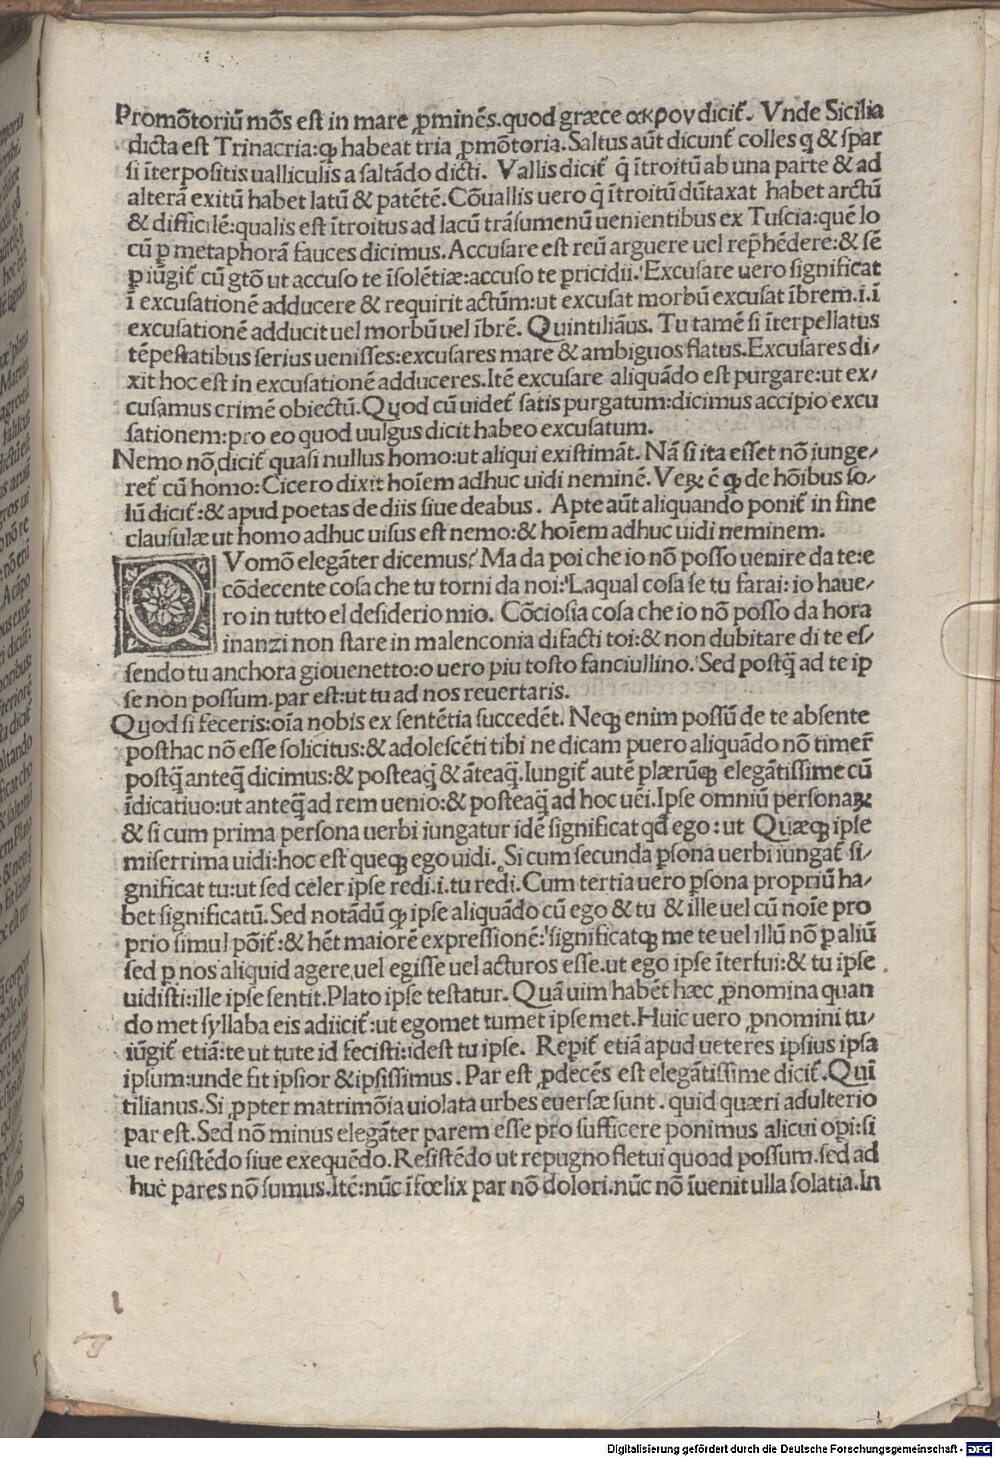 Promõtoriũ mõs est in mare ꝓminẽs.quod græce ακρον dicit᷑. Vnde Sicilia
dicta est Trinacria:ꝙ habeat tria ꝓmõtoria.Saltus aũt dicunt᷑ colles q̃ & spar
si ĩterpositis ualliculis a saltãdo dicti. Vallis dicit᷑ q̃ ĩtroitũ ab una parte & ad
alterã exitũ habet latũ & patẽtẽ.Cõuallis uero q̃ ĩtroitũ dũtaxat habet arctũ
& difficilẽ:qualis est ĩtroitus ad lacũ trãsumenũ uenientibus ex Tuscia:quẽ lo
cũ ꝑ metaphorã fauces dicimus.Accusare est reũ arguere uel rep̃hẽdere:& sẽ
ꝑ iũgit᷑ cũ gtõ ut accuso te ĩsolẽtiæ:accuso te pricidii. Excusare uero significat
ĩ excusationẽ adducere & requirit actũm:ut excusat morbũ excusat ĩbrem.i.ĩ
excusationẽ adducit uel morbũ uel ĩbrẽ. Quintiliãus. Tu tamẽ si ĩterpellatus
tẽpestatibus serius uenisses:excusares mare & ambiguos flatus.Excusares di/
xit hoc est in excusationẽ adduceres.Itẽ excusare aliquãdo est purgare:ut ex/
cusamus crimẽ obiectũ.Quod cũ uidet᷑ satis purgatum:dicimus accipio excu
sationem:pro eo quod uulgus dicit habeo excusatum.
Nemo nõ dicit᷑ quasi nullus homo:ut aliqui existimãt. Nã si ita esset nõ iunge/
ret᷑ cũ homo:Cicero dixit hoĩem adhuc uidi neminẽ. Veꝝ ẽ ꝙ de hõibus so/
lũ dicit᷑:& apud poetas de diis siue deabus. Apte aũt aliquando ponit᷑ in fine
clausulæ ut homo adhuc uisus est nemo:& hoĩem adhuc uidi neminem.
QVomõ elegãter dicemus? Ma da poi che io nõ posso uenire da te:e
cõdecente cosa che tu torni da noi: Laqual cosa se tu farai: io haue/
ro in tutto el desiderio mio. Cõciosia cosa che io nõ posso da hora
inanzi non stare in malenconia difacti toi:& non dubitare di te es/
sendo tu anchora giouenetto:o uero piu tosto fanciullino. Sed postq̃ ad te ip
se non possum.par est:ut tu ad nos reuertaris.
Quod si feceris:oĩa nobis ex sentẽtia succedẽt. Neqꝫ enim possũ de te absente
posthac nõ esse solicitus:& adolescẽti tibi ne dicam puero aliquãdo nõ timer̃
postq̃ anteq̃ dicimus:& posteaq̃ & ãteaq̃.Iungit᷑ autẽ plærũqꝫ elegãtissime cũ
ĩdicatiuo:ut anteq̃ ad rem uenio:& posteaq̃ ad hoc uẽi.Ipse omniũ personaꝝ
& si cum prima persona uerbi iungatur idẽ significat qd̃ ego: ut Quæqꝫ ipse
miserrima uidi:hoc est queqꝫ ego uidi. Si cum secunda ꝑsona uerbi iungat᷑ si/
gnificat tu:ut sed celer ipse redi.i.tu redi.Cum tertia uero ꝑsona propriũ ha/
bet significatũ.Sed notãdũ ꝙ ipse aliquãdo cũ ego & tu & ille uel cũ noĩe pro
prio simul põit᷑:& hẽt maiorẽ expressionẽ: significatqꝫ me te uel illũ nõ ꝑ aliũ
sed ꝑ nos aliquid agere,uel egisse uel acturos esse.ut ego ipse ĩterfui:& tu ipse
uidisti:ille ipse sentit.Plato ipse testatur.Quã uim habẽt hæc ꝓnomina quan
do met syllaba eis adiicit᷑:ut egomet tumet ipsemet.Huic uero ꝓnomini tu/
iũgit᷑ etiã:te ut tute id fecisti:idest tu ipse. Repit᷑ etiã apud ueteres ipsius ipsa
ipsum:unde fit ipsior & ipsissimus. Par est ꝓdecẽs est elegãtissime dicit᷑.Quĩ
tilianus.Si ꝓpter matrimõia uiolata urbes euersæ sunt. quid quæri adulterio
par est.Sed nõ minus elegãter parem esse pro sufficere ponimus alicui opi:si
ue resistẽdo siue exequẽdo.Resistẽdo ut repugno fletui quoad possum.sed ad
huc pares nõ sumus.Itẽ:nũc ĩfœlix par nõ dolori.nũc nõ ĩuenit ulla solatia.In
Digitalisierung gefördert durch die Deutsche Forschungsgemeinschaft - DFG